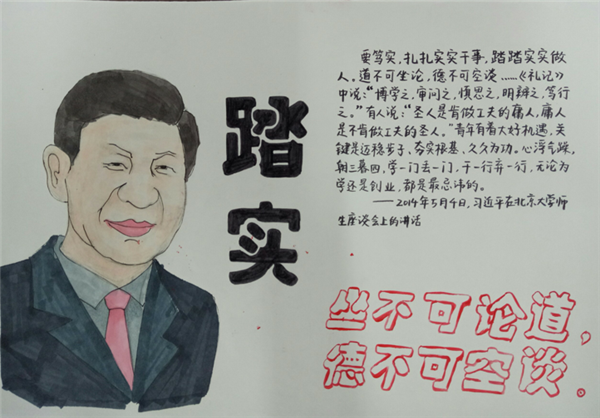 踏
实
要笃实,扎扎实实干事,踏踏实实做
人。道不可坐论,德不可空谈……《礼记》
中说:“博学之,审问之,慎思之,明辨之,笃行
之。”有人说:“圣人是肯做工夫的庸人,庸人
是不肯做工夫的圣人。”青年有着大好机遇,关
键是迈稳步子、夯实根基、久久为功。心浮气躁,
朝三暮四,学一门丢一门,干一行弃一行,无论为
学还是创业,都是最忌讳的。
——2014年5月4日,习近平在北京大学师
生座谈会上的讲话
坐不可论道,
德不可空谈。